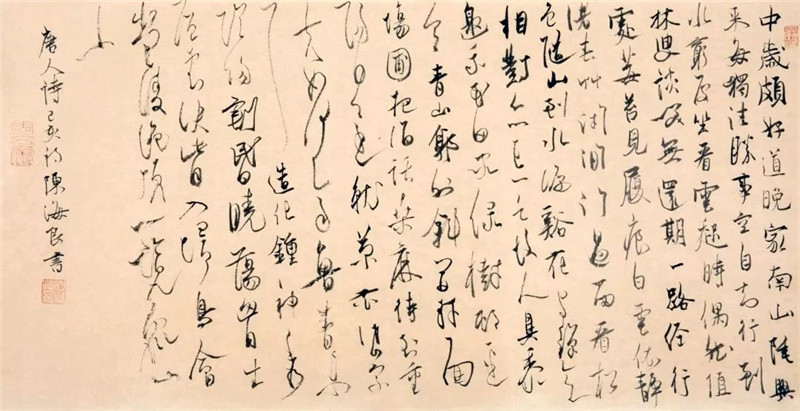 中歲頗好道晚家南山陲興
来每獨往勝事空自知行到
水窮處坐看雲起時偶然值
林叟談笑無還期一路經行
處莓苔見履痕白雲依靜
渚春草閉閒門過雨看松
色隨山到水源谿花與禪意
相對亦忘言故人具雞黍
邀我至田家綠樹村邊
合青山郭外斜開軒面
場圃把酒話桑麻待到重
陽日還来就菊花岱宗
夫如何齊魯青未
了造化鍾神秀
陰陽割昏曉蕩胸生
層雲決眥入歸鳥會
當凌絕頂一覽衆山
小
唐人詩己亥陳海良書